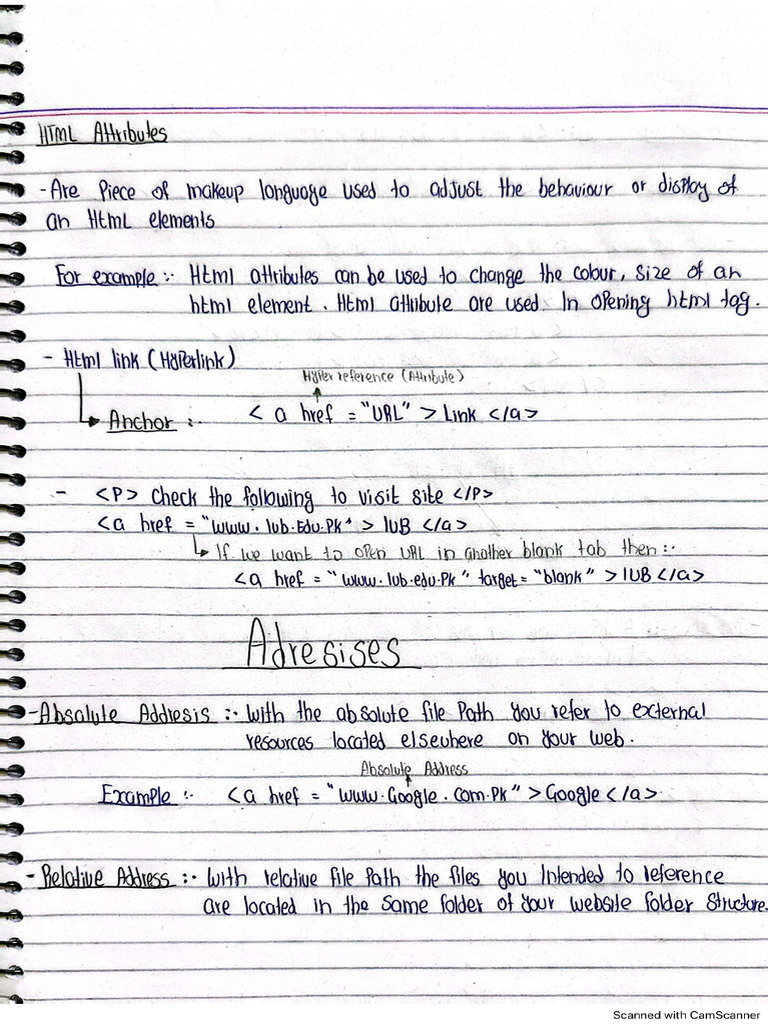 HTML Attributes
- Are Piece of makeup language used to adjust the behaviour or display of
an Html elements
For example :- Html attributes can be used to change the colour, size of an
html element. Html attribute are used In opening html tag.
- Html link (Hyperlink)
Hyper reference (Attribute)
Anchor :- < a href = "URL" > Link </a>
- <P> Check the following to visit site </P>
<a href = "www.iub.Edu.Pk" > IUB </a>
If we want to open URL in another blank tab then :-
<a href = "www.iub.edu.Pk" target = "blank" > IUB </a>
Adresises
- Absolute Addresis :- with the absolute file Path you refer to external
resources located elsewhere on your web.
Absolute Address
Example :- <a href = "www.Google.com.PK" > Google </a>
- Relative Address :- with relative file Path the files you Intended to reference
are located in the same folder of your website folder structure.
Scanned with CamScanner